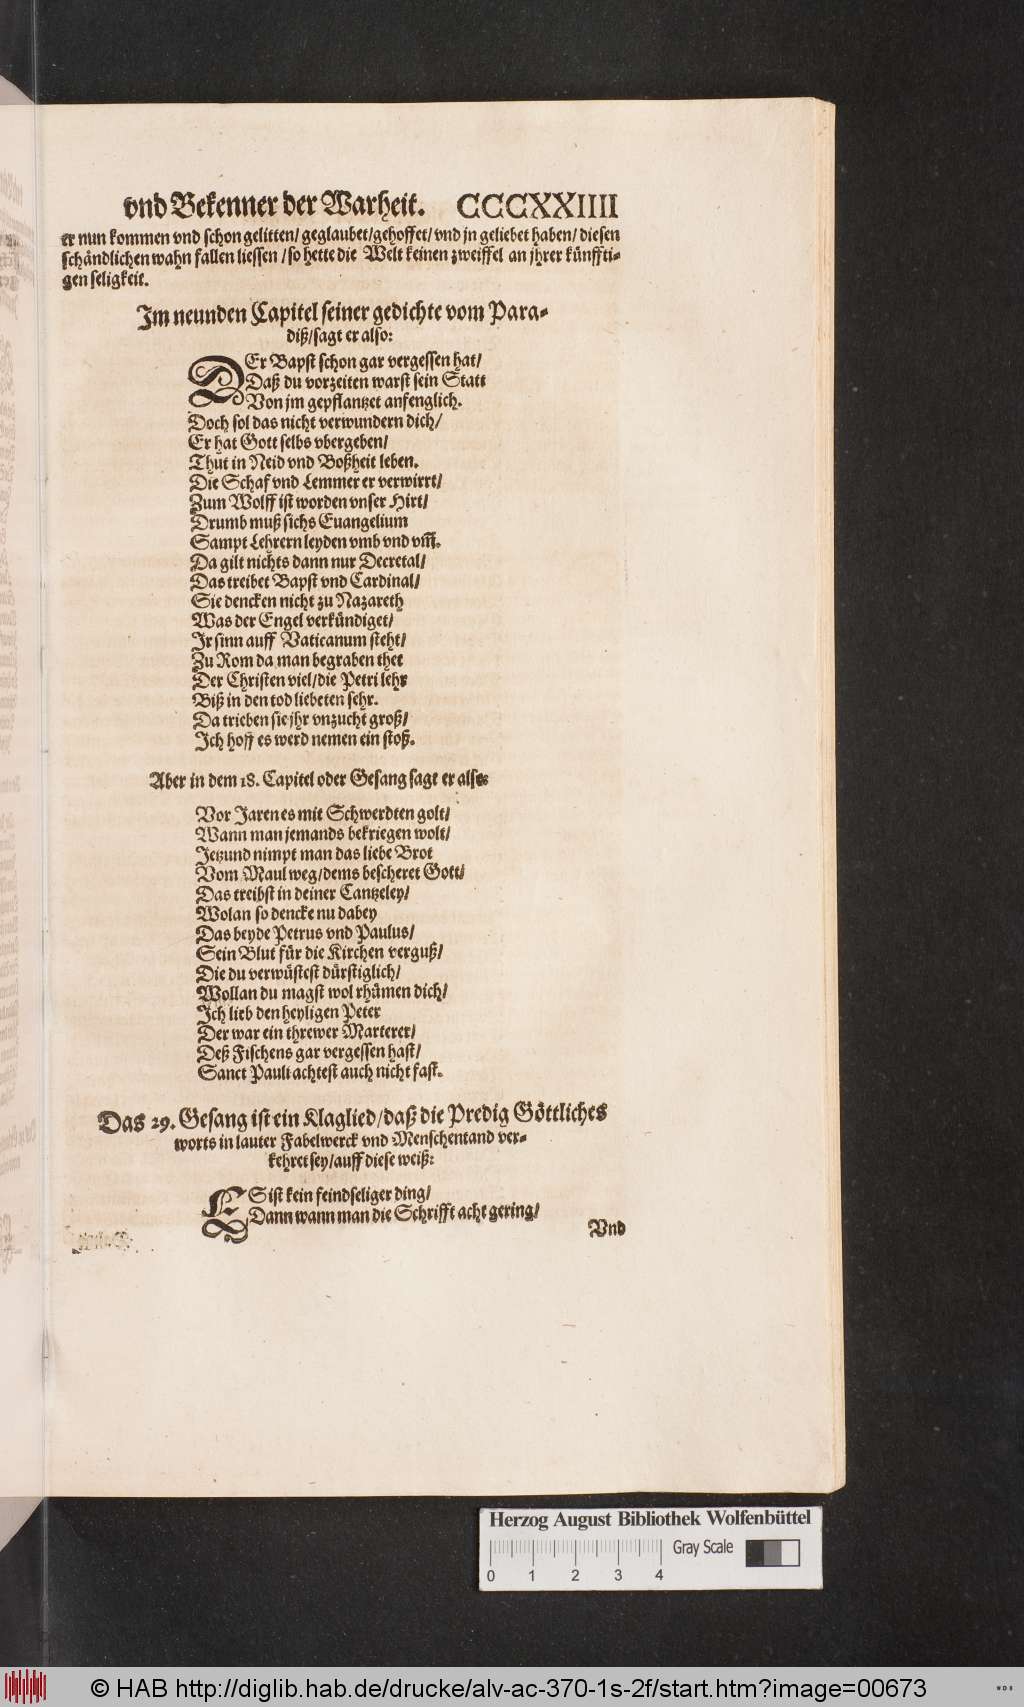 vnd Bekenner der Warheit. CCCXXIIII
er nun kommen vnd schon gelitten/ geglaubet/gehoffet/ vnd jn geliebet haben/ diesen
schändlichen wahn fallen liessen /so hette die Welt keinen zweiffel an jhrer künffti-
gen seligkeit.
Im neunden Capitel seiner gedichte vom Para-
diß/sagt er also:
DEr Bapst schon gar vergessen hat/
Daß du vorzeiten warst sein Statt
Von jm gepflantzet anfenglich.
Doch sol das nicht verwundern dich/
Er hat Gott selbs vbergeben/
Thut in Neid vnd Boßheit leben.
Die Schaf vnd Lemmer er verwirrt/
Zum Wolff ist worden vnser Hirt/
Drumb muß sichs Euangelium
Sampt Lehrern leyden vmb vnd vm̃.
Da gilt nichts dann nur Decretal/
Das treibet Bapst vnd Cardinal/
Sie dencken nicht zu Nazareth
Was der Engel verkündiget/
Ir sinn auff Vaticanum steht/
Zu Rom da man begraben thet
Der Christen viel/die Petri lehr
Biß in den tod liebeten sehr.
Da trieben sie jhr vnzucht groß/
Ich hoff es werd nemen ein stoß.
Aber in dem 18. Capitel oder Gesang sagt er also:
Vor Jaren es mit Schwerdten golt/
Wann man jemands bekriegen wolt/
Jetzund nimpt man das liebe Brot
Vom Maul weg/dems bescheret Gott/
Das treibst in deiner Cantzeley/
Wolan so dencke nu dabey
Das beyde Petrus vnd Paulus/
Sein Blut für die Kirchen verguß/
Die du verwüstest dürstiglich/
Wollan du magst wol rhümen dich/
Ich lieb den heyligen Peter
Der war ein threwer Marterer/
Deß Fischens gar vergessen hast/
Sanct Pauli achtest auch nicht fast.
Das 29. Gesang ist ein Klaglied/daß die Predig Göttliches
worts in lauter Fabelwerck vnd Menschentand ver-
kehret sey/auff diese weiß:
ES ist kein feindseliger ding/
Dann wann man die Schrifft acht gering/
Vnd
Herzog August Bibliothek Wolfenbüttel
Gray Scale
0 1 2 3 4
© HAB http://diglib.hab.de/drucke/alv-ac-370-1s-2f/start.htm?image=00673